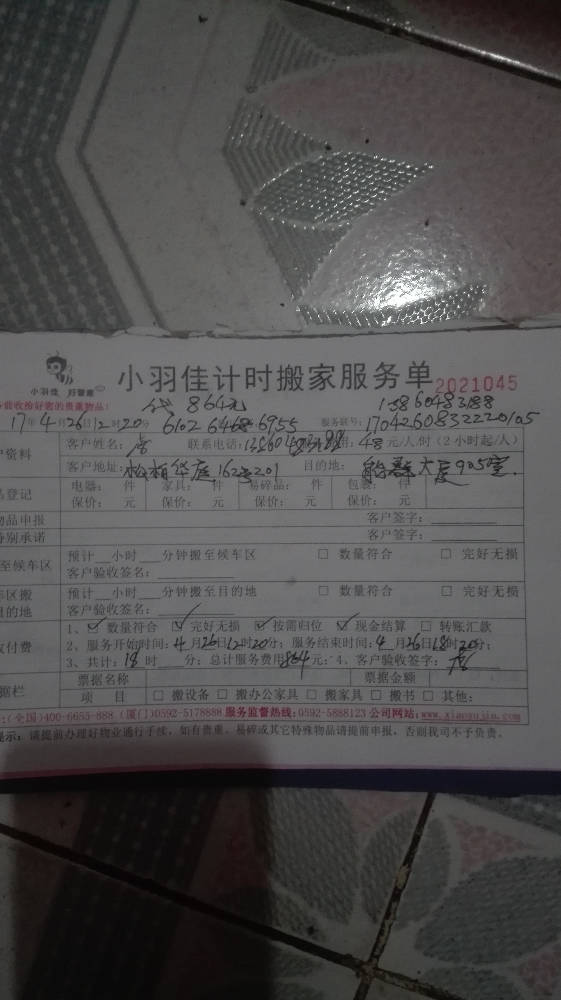 小羽佳 好管家
小羽佳计时搬家服务单 2021045
前收拾好您的贵重物品! 864元 13860483188
17年4月26日12时20分 6102 6468 6955 服务联号: 17042608322220105
户资料 客户姓名: 联系电话: 用: 48元/人/时 (2小时起/人)
客户地址: 松柏华庭162号201 目的地: 船舶大厦905室
品登记 电器: 件 家具: 件 易碎品: 件 包裹: 件
保价: 元 保价: 元 保价: 元 保价: 元
物品申报 客户签字:
特别承诺 客户签字:
至候车区 预计__小时___分钟搬至候车区 □ 数量符合 □ 完好无损
客户验收签名:
车区搬 预计__小时___分钟搬至目的地 □ 数量符合 □ 完好无损
目的地 客户验收签名:
收付费 1、☑ 数量符合 ☑ 完好无损 ☑ 按需归位 ☑ 现金结算 □ 转账汇款
2、服务开始时间: 4月26日12时20分; 服务结束时间: 4月26日18时20分;
3、共计: 18时___分; 总计服务费用864元; 4、客户验收签字:
据栏 票据名称 票据金额
项 目 □ 搬设备 □ 搬办公家具 □ 搬家具 □ 搬书 □ 其他:
:(全国)400-6655-888 (厦门)0592-5178888 服务监督热线: 0592-5888123 公司网站: www.xiaoyujia.com
提示: 请提前办理好物业通行手续, 如有贵重、易碎或其它特殊物品请提前申报, 否则我司不予负责。